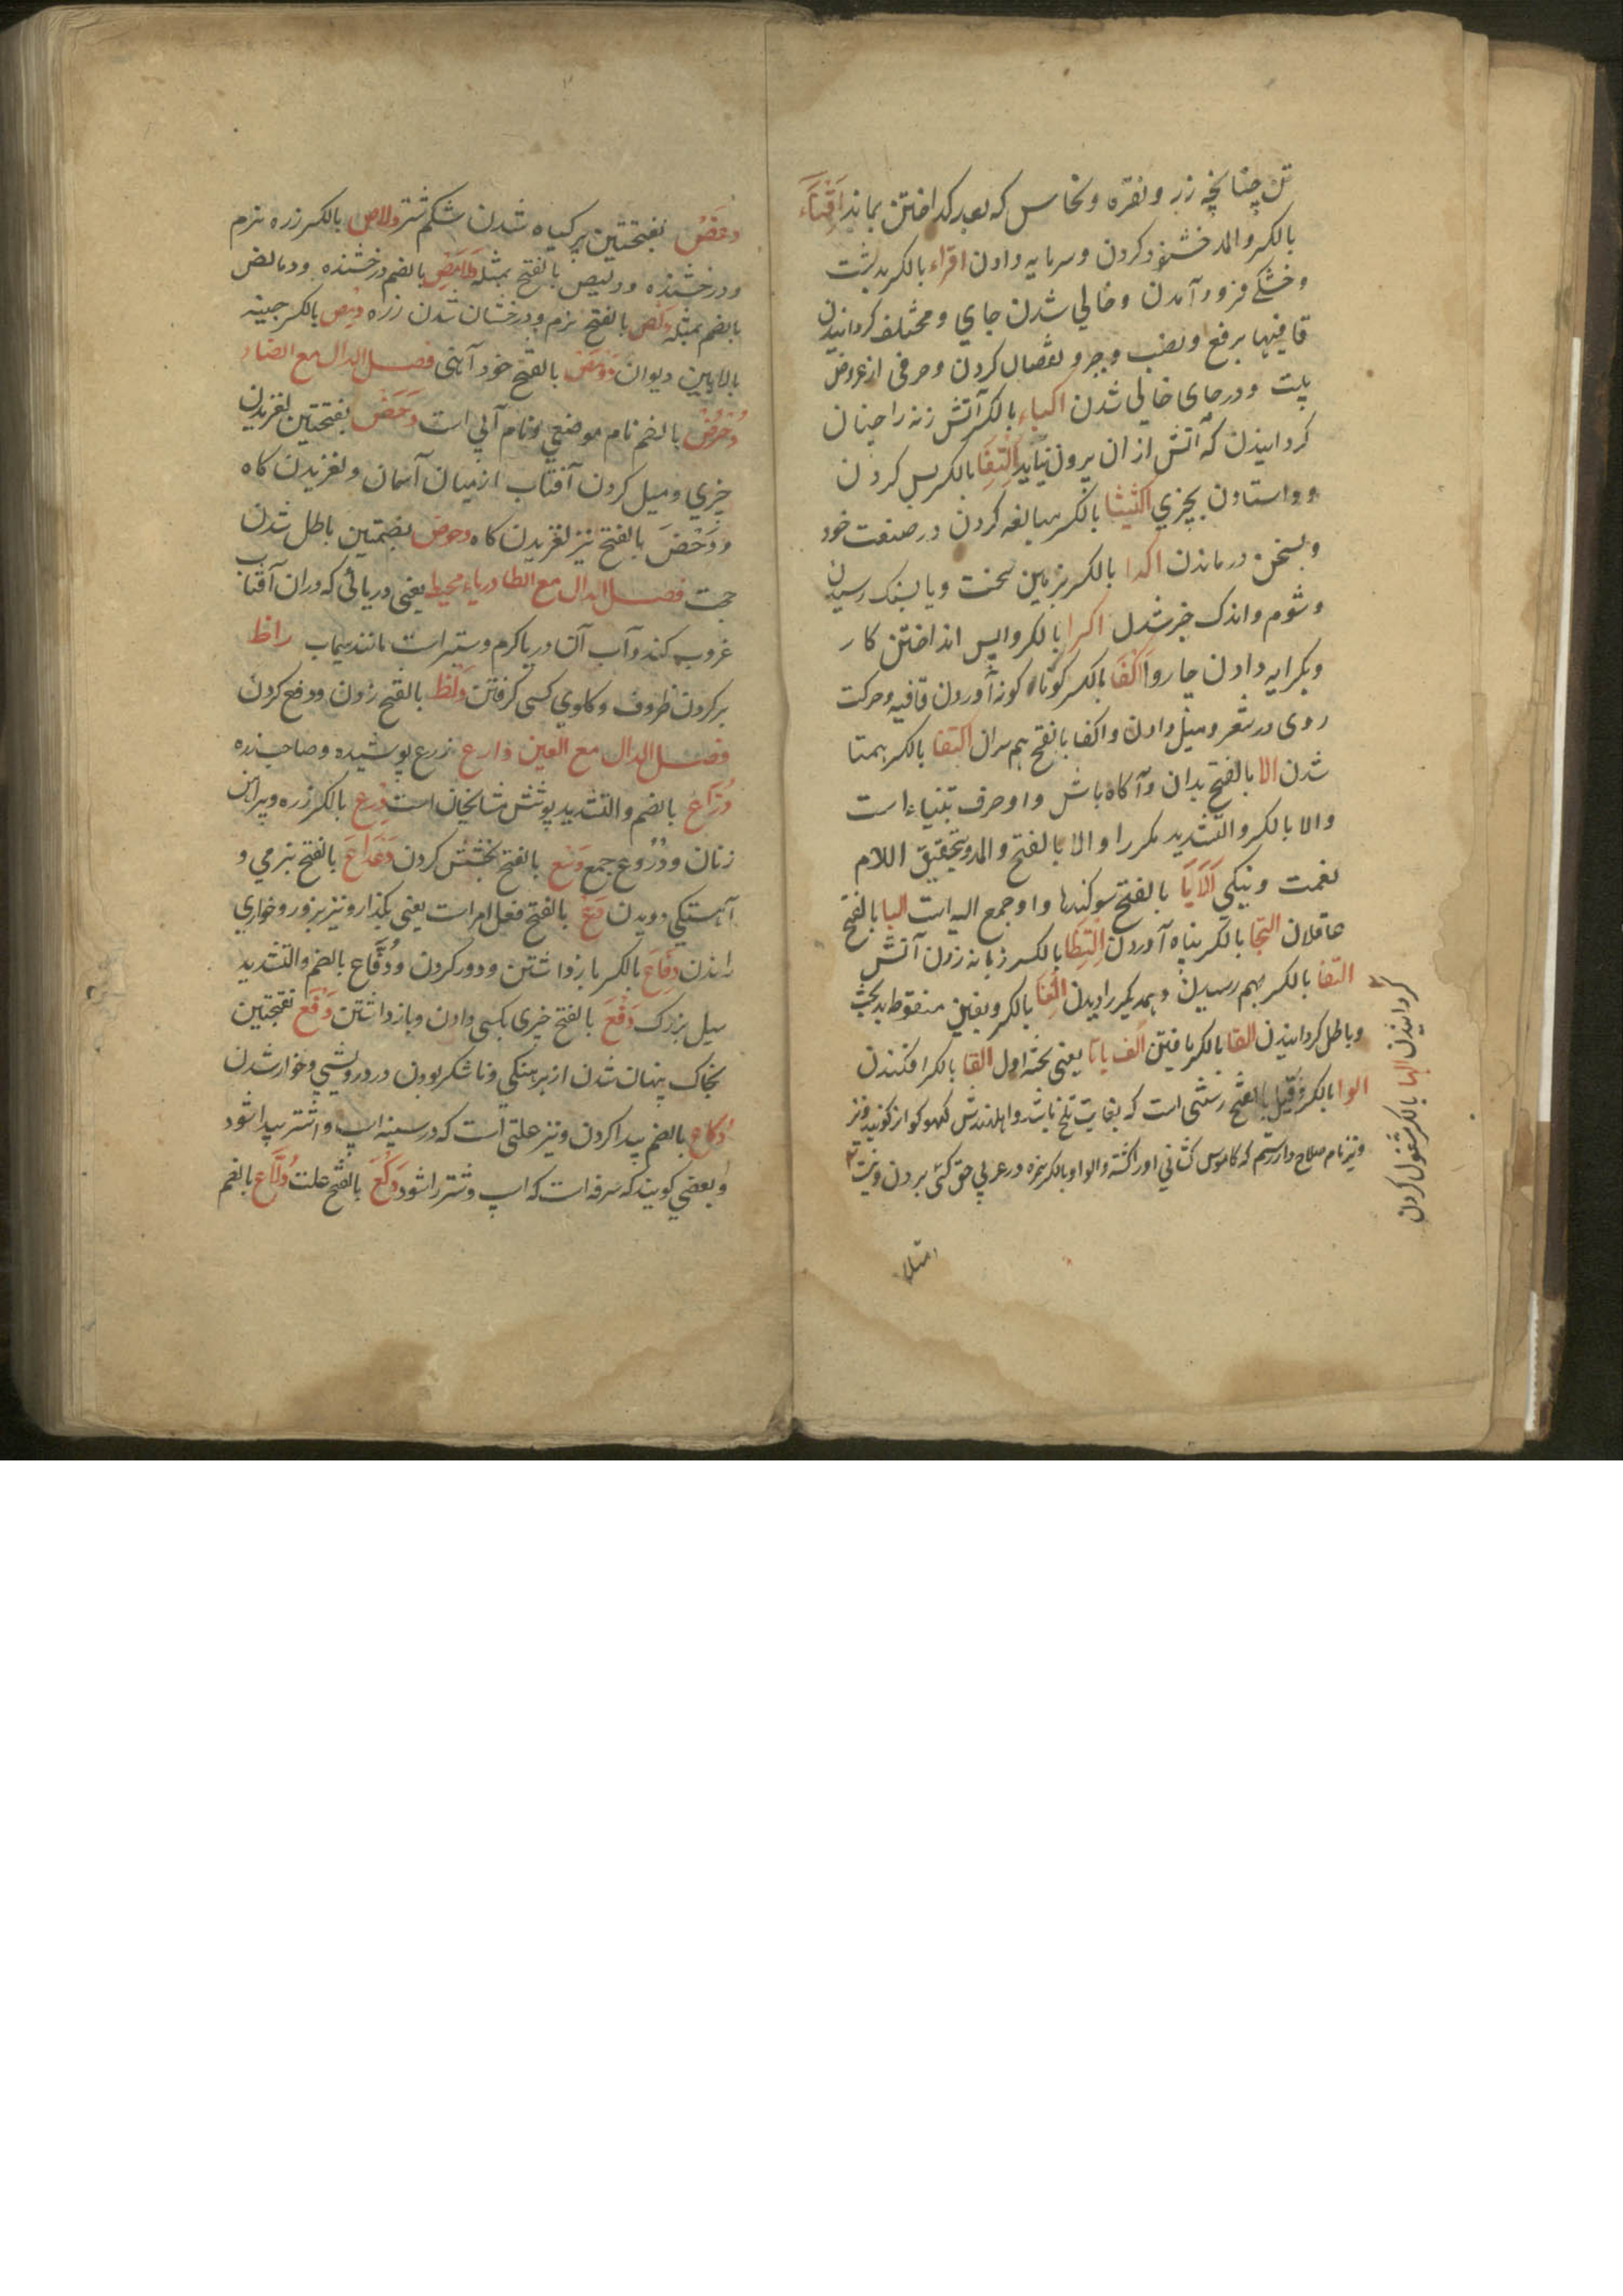 تن چنانچه زر و نقره و نحاس که بعد کداختن بماند اقناء
بالکسر والمد خشنود کردن و سرمایه دادن اقراء بالکسر بدشت
و خشکے فرود آمدن و خالي شدن جاي و مختلف کردانیدن
قافیها برفع و نصب و جر و نقصان کردن و حرفی از عروض
بیت و در جای خالی شدن اکباء بالکسر آتش زنه را چنان
کردانیدن که آتش از ان بیرون نیاید اکتفا بالکسر بس کردن
و واستادن بچیزي بالکسر مبالغه کردن در صنعت خود
و بسخن درماندن اکدا بالکسر بزمین سخت و یا بسنک رسیدن
و شوم و اندک خیر شدن اکرا بالکسر واپس انداختن کار
و بکرایه دادن چاروا اکفا بالکسر کوتاه کوزه آوردن قافیه و حرکت
روی در شعر و میل دادن و اکفا بالفتح هم سران اکتفا بالکسر همتا
شدن الا بالفتح بدان و آکاه باش و او حرف تنبیاء است
والا بالکسر والتشدید مکر را و الا بالفتح والمد و بتحقیق اللام
نعمت و نیکي الایا بالفتح سوکندها و او جمع الیه است البا بالفتح
عاقلان التجا بالکسر پناه آوردن التظا بالکسر زبانه زدن آتش
التقا بالکسر بهم رسیدن و همدیکر را دیدن الغا بالکسر و بغین منقوطه بدبخت
و باطل کردانیدن الفا بالکسر یافتن الف باتا یعنی تخته اول القا بالکسر افکندن
الوا بالکسر و قیل بالفتح رستنی است که بغایت تلخ باشد و اهل هندش کهیکوار کویند و نیز
و نیز نام سلاح دار رستم که کاموس کشانی او را کشته و الوا و بالکسر همزه در عربي حق کسی بردن و نیست
کردانیدن الها بالکسر مشغول کردن
امتلا
دغص بفتحتین پر کیاه شدن شکم شتر دلاص بالکسر زره نرم
و درخشنده و دلیص بالفتح بمثله دلامص بالضم درخشنده و دمالص
بالضم بمثله دلص بالفتح نرم و درخشان شدن زره دمص بالکسر چینه
بالایین دیوان دومص بالفتح خود آهنی فصل الدال مع الضاد
دحرض بالضم نام موضعي و نام آبي است دحض بفتحتین لغزیدن
چیزي و میل کردن آفتاب از میان آسمان و لغزیدن کاه
و دحض بالفتح نیز لغزیدن کاه دحوض بضمتین باطل شدن
حجت فصل الدال مع الطا دریاء محیط یعنی دریائی که دران آفتاب
غروب کند و آب آن دریا کرم و ستبر است مانند سیماب داظ
پر کردن ظروف و کلوي کسی کرفتن دلظ بالفتح زدن و دفع کردن
فصل الدال مع العین دارع زرع پوشیده و صاحب زره
دراع بالضم والتشدید پوشش مشایخان است درع بالکسر زره و پیراهن
زنان و دروع جمع دسع بالفتح بخشش کردن دعداع بالفتح بنرمي و
آهستکي دویدن دع بالفتح فعل امر است یعنی بکذار و نیز بزور و خواري
راندن دفاع بالکسر بازداشتن و دور کردن و دفاع بالضم والتشدید
سیل بزرک دفع بالفتح چیزی بکسی دادن و بازداشتن دقع بفتحتین
بخاک پنهان شدن از برهنکي و ناشکر بودن در درویشي و خوار شدن
دکاع بالضم پیدا کردن و نیز علتی است که در سینه اسپ و اشتر پیدا شود
و بعضي کویند که سرفه است که اسپ و شتر را شود دکع بالفتح علت دلاع بالضم